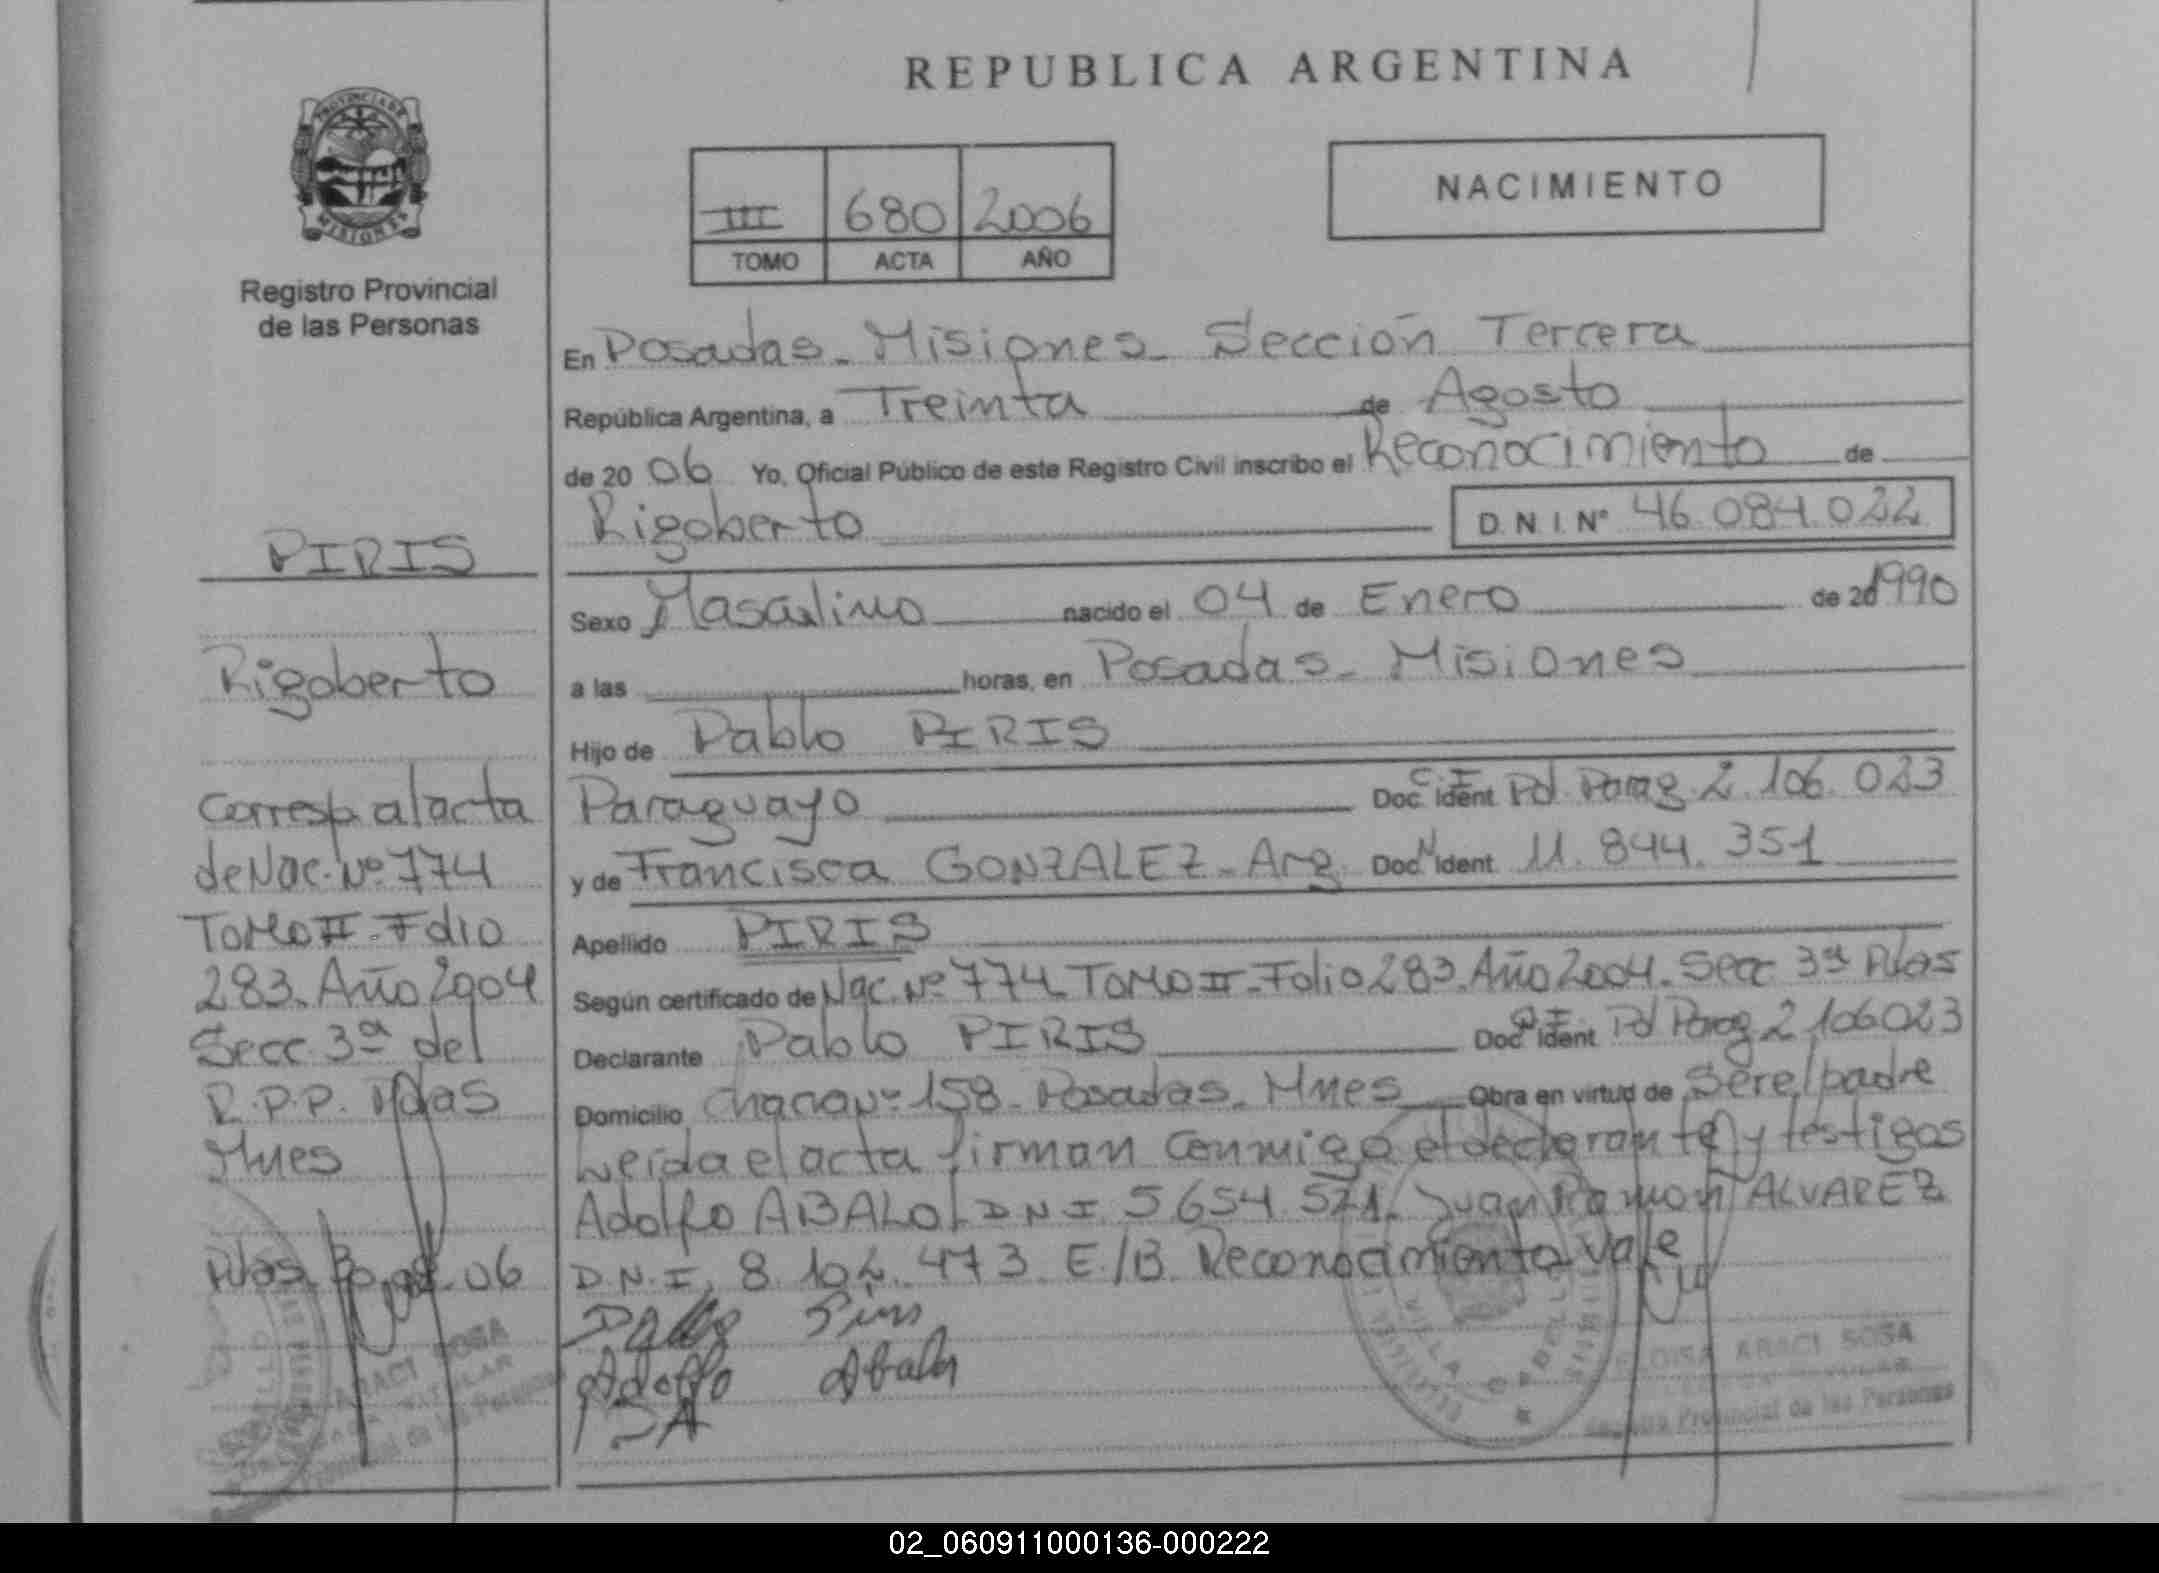 REPUBLICA ARGENTINA
PROVINCIA DE
MISIONES
Registro Provincial
de las Personas
III 680 2006
TOMO ACTA AÑO
NACIMIENTO
En Posadas - Misiones - Sección Tercera
República Argentina, a Treinta de Agosto
de 2006 Yo, Oficial Público de este Registro Civil inscribo el Reconocimiento de
Rigoberto D.N.I. Nº 46.084.022
Sexo Masculino nacido el 04 de Enero de 20 1990
a las horas, en Posadas - Misiones
Hijo de Pablo PIRIS
Paraguayo Doc. Ident. C.I. Pol Parag 2.106.023
y de Francisca GONZALEZ - Arg. Doc. Ident. 11.844.351
Apellido PIRIS
Según certificado de Nac. Nº 774 Tomo II - Folio 283. Año 2004. Secc 3ª Pdas
Declarante Pablo PIRIS Doc. Ident. C.I. Pol Parag 2.106023
Domicilio Chacra Nº 158 - Posadas - Mnes Obra en virtud de Ser el padre
Leida el acta firman conmigo el declarante y testigos
Adolfo ABALO D N I 5.654.521. Juan Ramon ALVAREZ
D.N.I. 8.102.473. E/B. Reconocimiento Vale
Pablo Piris
Adolfo Abalo
PIRIS
Rigoberto
Corresp al acta
de Nac. Nº 774
Tomo II - Folio
283. Año 2004
Secc. 3ª del
R.P.P. Pdas
Mnes
Pdas 06
ARACI SOSA
VILLA CABELLO
ELOISA ARACI SOSA
Registro Provincial de las Personas
02_060911000136-000222